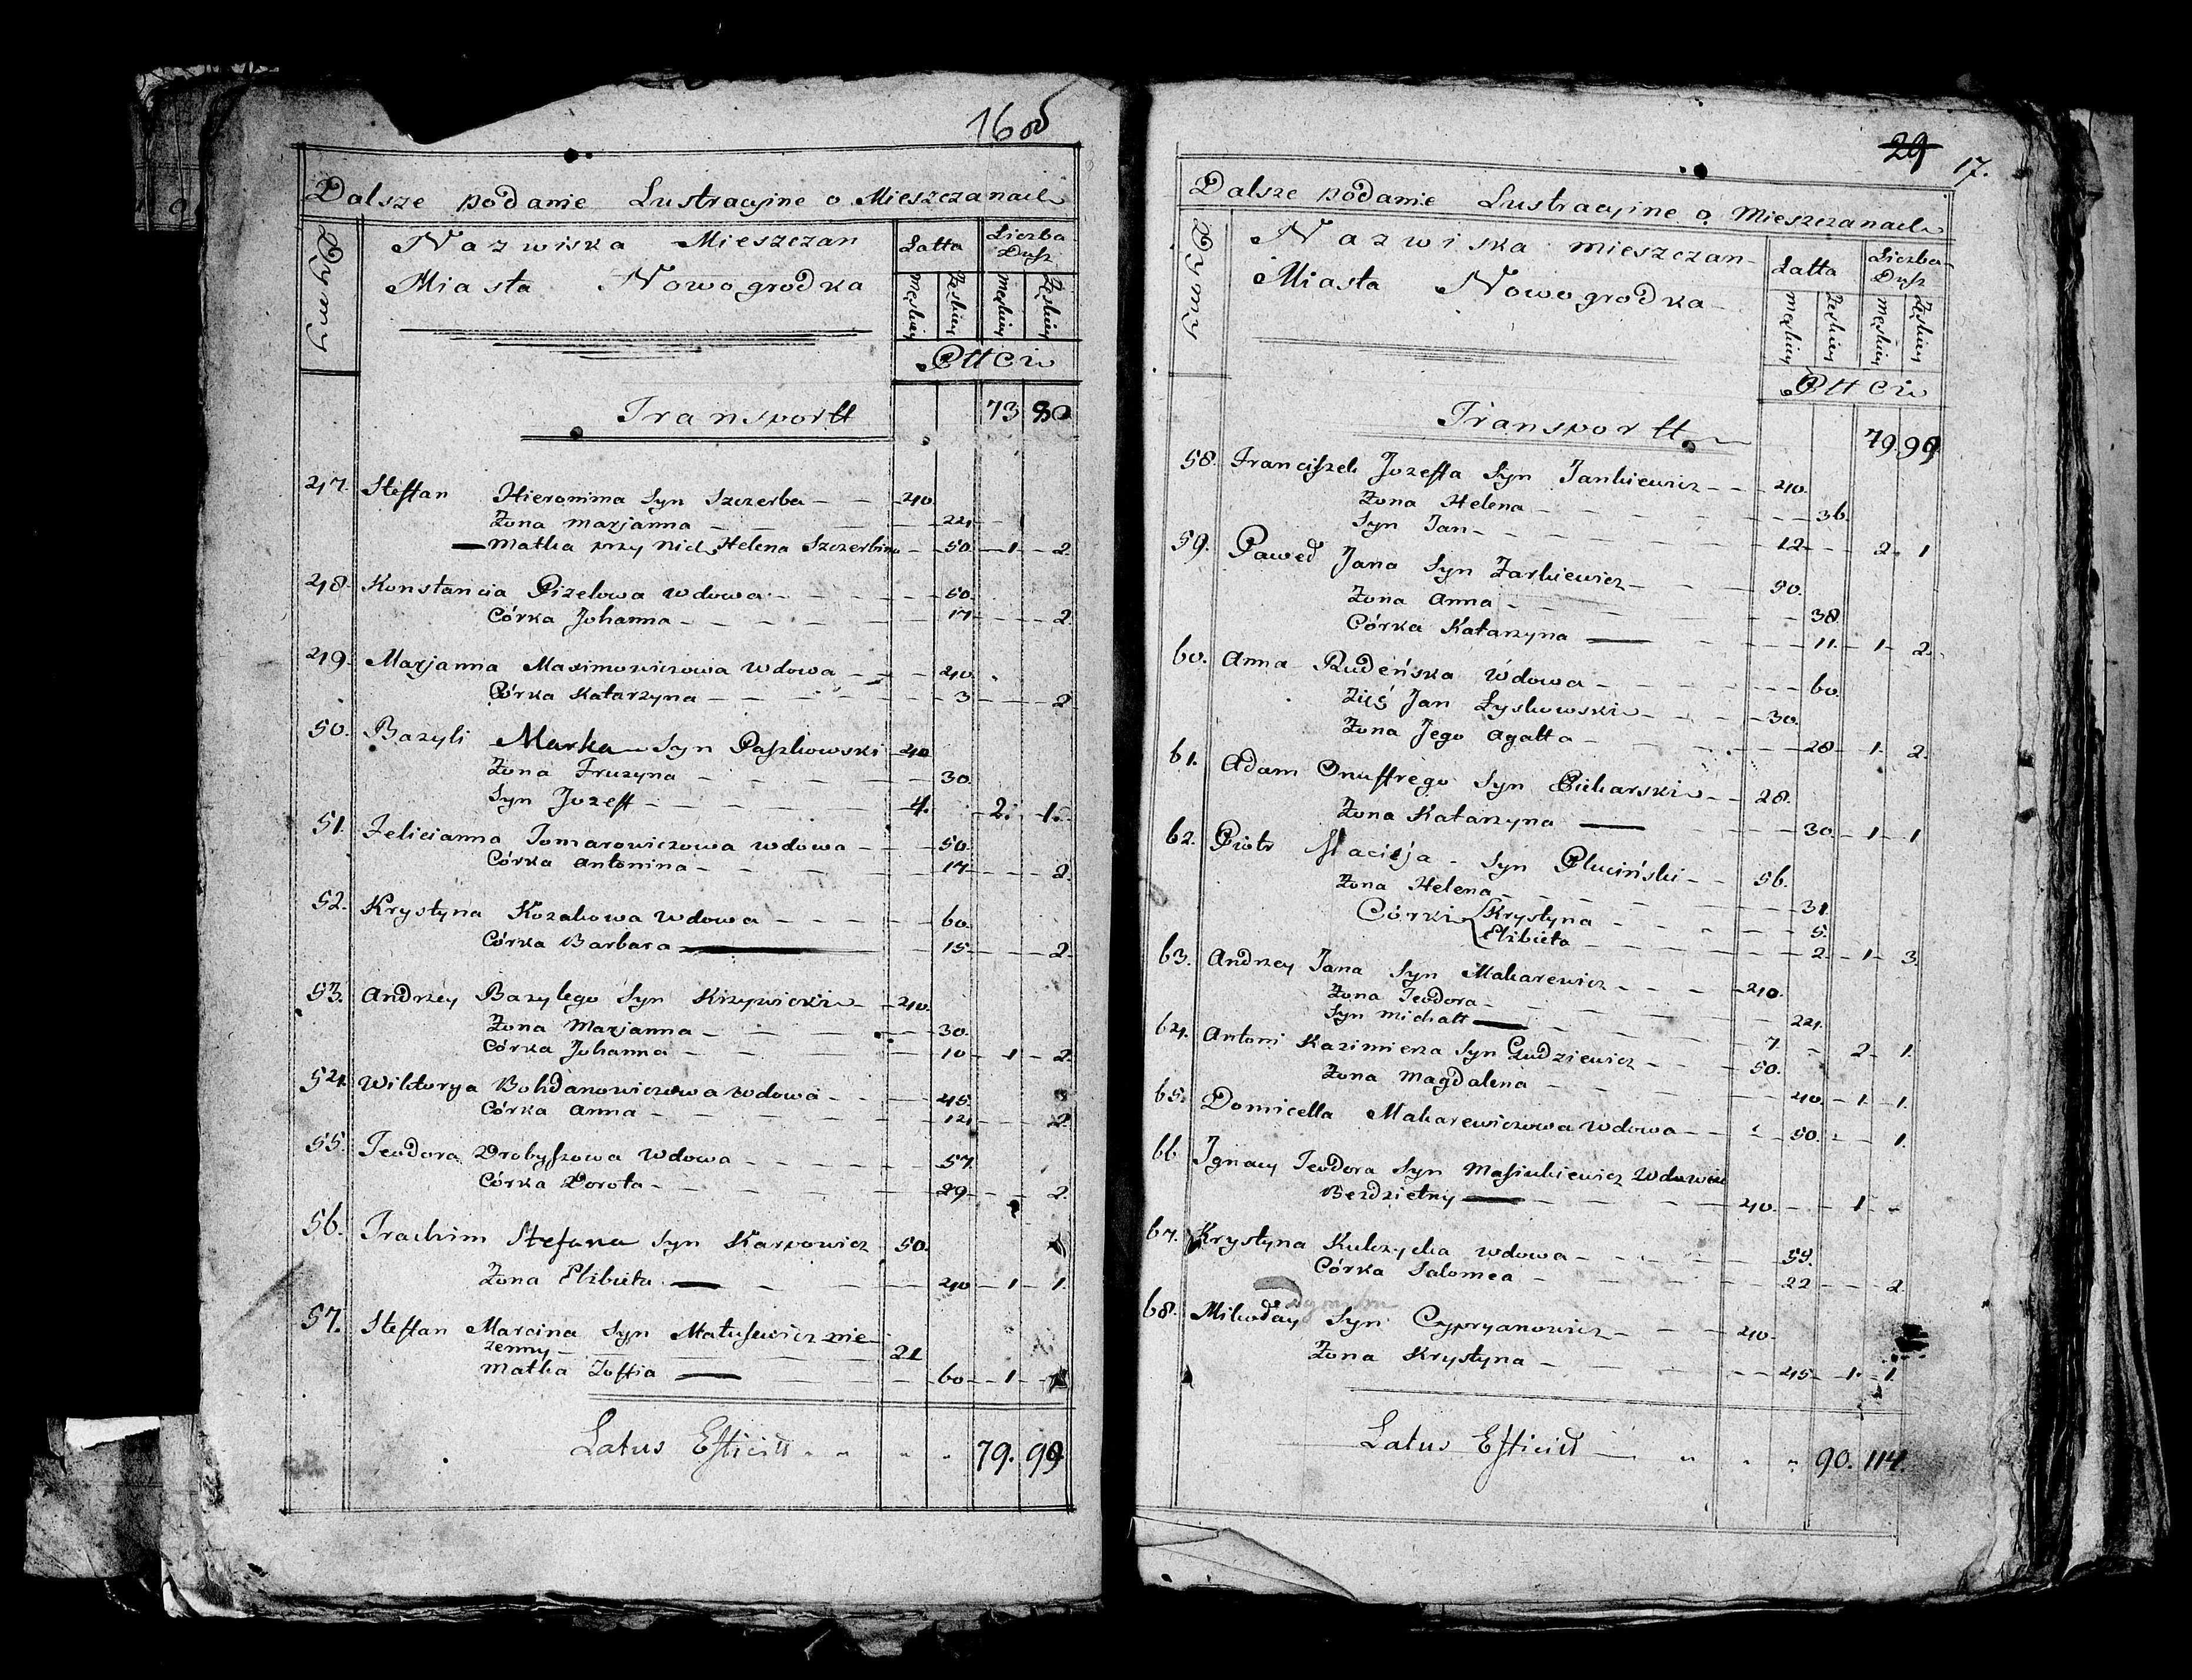 16 об
Dalsze podanie Lustracyjne o Mieszczanach
Dymy
Nazwiska Mieszczan
Miasta Nowogrodka
Latta
Liczba Dusz
męskiey
żęskiey
męskiey
żęskiey
Płłci
Transportt 73 80
47. Steffan Hieronima Syn Szczerba - - 40.
Żona Marjanna - - - 24
Matka przy nich Helena Szczerbina - - 50 - 1 - 2.
48. Konstancia Pizelowa wdowa - - - 50.
Córka Johanna - - - 17 - - - 2
49. Marjanna Maximowiczowa Wdowa - - 40.
Córka Katarzyna - - - 3 - - - 2
50. Bazyli Marka Syn Paszkowski 40
Żona Fruzyna - - - 30.
Syn Jozeff - - - 4. - 2. - 1.
51. Felicianna Tomarowiczowa wdowa - - 50.
Córka Antonina - - - 17 - - - 2.
52. Krystyna Kozakowa Wdowa - - - 60.
Córka Barbara - 15 - - - 2.
53. Andrzey Bazylego Syn Krzywicki - 40.
Żona Marjanna - - - 30.
Córka Johanna - - - 10 - 1 - 2.
54. Wiktorya Bohdanowiczowa wdowa - - 45.
Córka Anna - - - 12 - - - 2.
55. Teodora Drobyszowa Wdowa - - - 57.
Córka Dorota - - - 29 - - - 2.
56. Trachim Stefana Syn Karpowicz 50.
Żona Elżbieta - - 40 - 1 - 1.
57. Steffan Marcina Syn Matusewicz nie
żenny - - - 21
Matka Zoffia - - - 60 - 1 -
Latus Efficitt 79. 99
29 17.
Dalsze podanie Lustracyjne o Mieszczanach
Dymy
Nazwiska mieszczan
Miasta Nowogrodka
Latta
Liczba Dusz
męskiey
żęskiey
męskiey
żęskiey
Płłci
Transportt 79. 99
58. Franciszek Jozeffa Syn Jankiewicz - - 40.
Żona Helena - - - 36.
Syn Jan - - - 12 - - 2 - 1
59. Paweł Jana Syn Żarkiewicz - - - 50.
Żona Anna - - - 38.
Córka Katarzyna - - 11. - 1 - 2.
60. Anna Rudeńska Wdowa - - - 60.
Zięć Jan Łyskowski - - - 30.
Żona Jego Agatta - - - 28 - 1 - 2.
61. Adam Onuffrego Syn Piekarski - - 28.
Żona Katarzyna - - 30 - 1 - 1
62. Piotr Macieja Syn Pluciński - - 56.
Żona Helena - - - 31
Córki { Krystyna - - - 5.
Elżbieta - - - 2 - 1 - 3.
63. Andrzey Jana Syn Makarewicz - - - 40.
Żona Teodora - - - 24.
Syn Michałł - - 7. - - 2 - 1.
64. Antoni Kazimierza Syn Gudziewicz - - - 50.
Żona Magdalena - - - 40. - 1 - 1.
65. Domicella Makarewiczowa wdowa - - - 50. - - 1.
66 Ignacy Teodora Syn Masiukiewicz Wdowiec
Bezdzietny - - 40. - - 1 -
67. Krystyna Kulczycka wdowa - - - 59.
Córka Salomea - - - 22 - - - 2.
68. Mikołay Syn Cypryanowicz - - - 40.
Żona Krystyna - - - 45 - 1. - 1.
Latus Efficitt 90. 114.